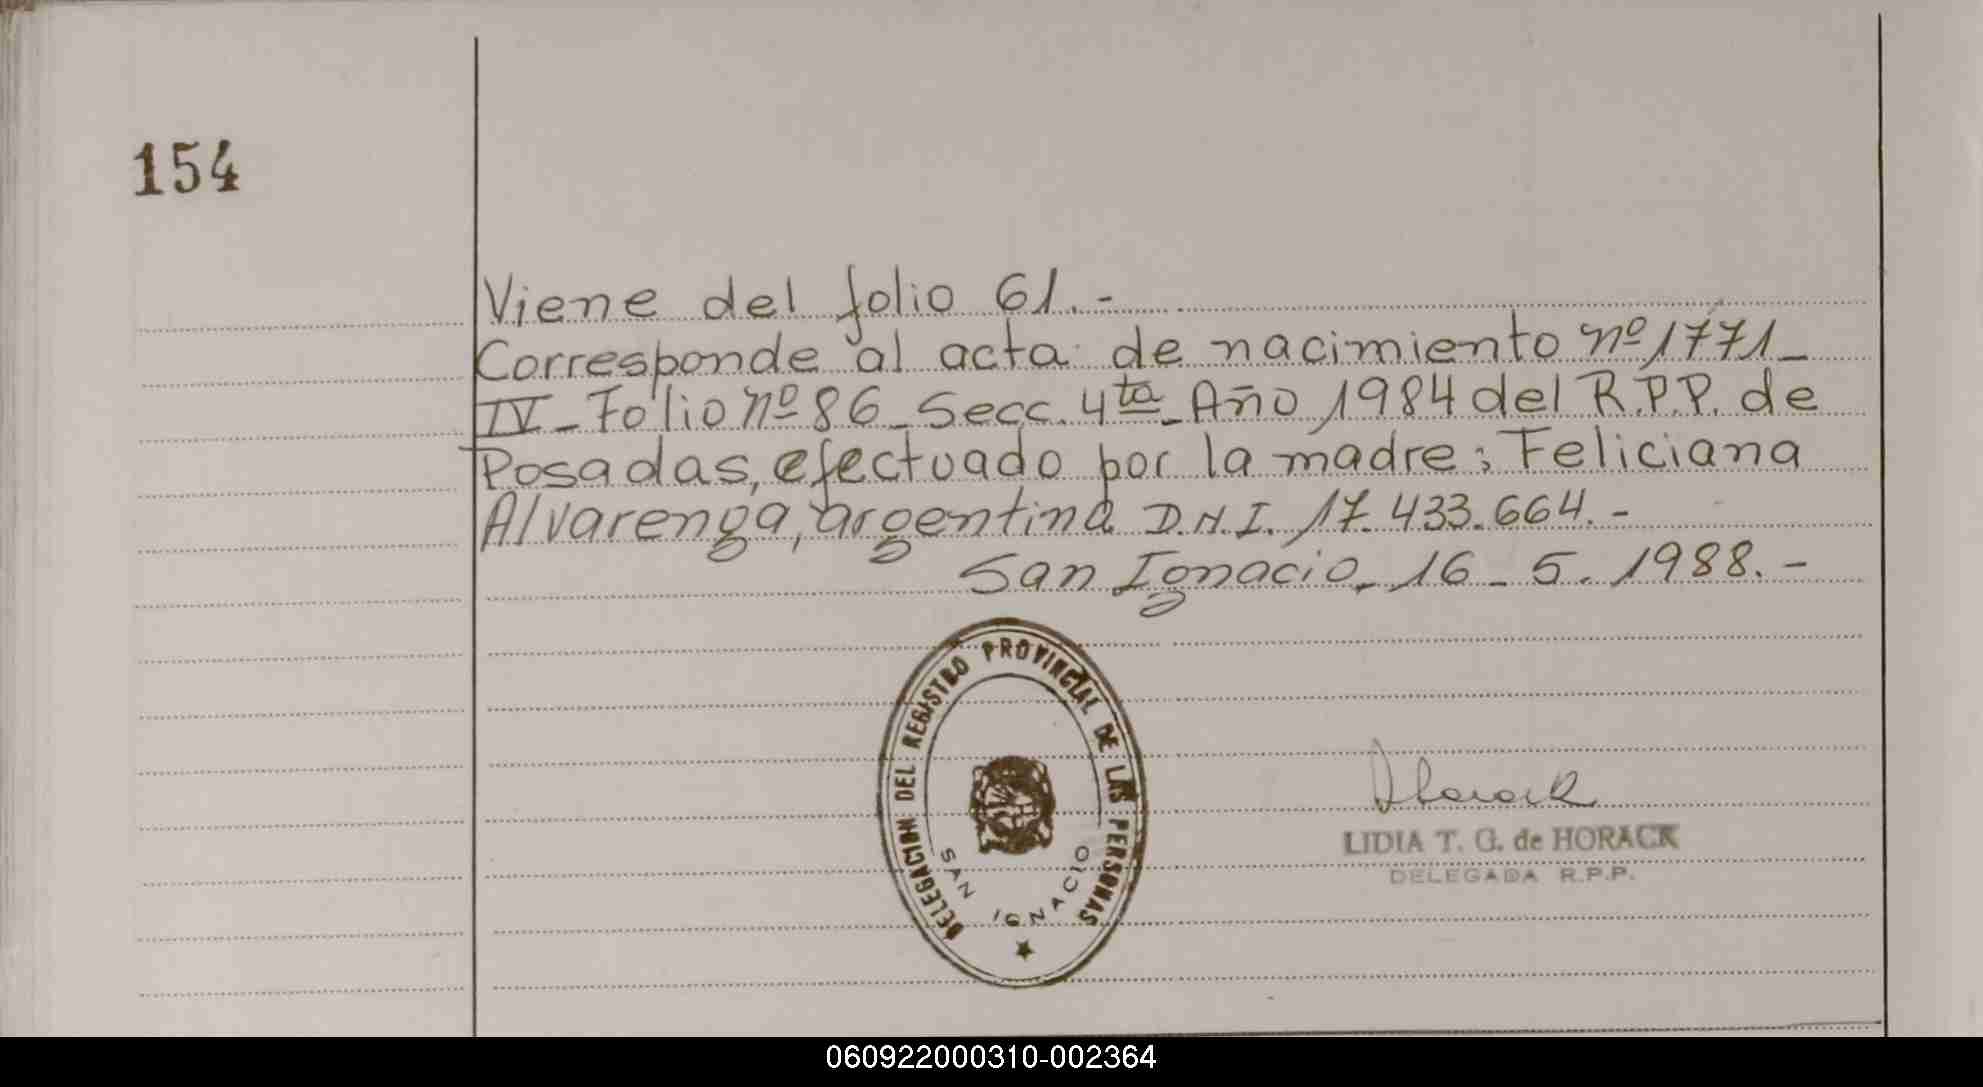 154
Viene del folio 61.-
Corresponde al acta de nacimiento nº 1771-
IV- Folio nº 86- Secc. 4ta- Año 1984 del R.P.P. de
Posadas, efectuado por la madre: Feliciana
Alvarenga, argentina D.N.I. 17.433.664.-
San Ignacio, 16-5.1988.-
DELEGACION DEL REGISTRO PROVINCIAL DE LAS PERSONAS
SAN IGNACIO
LIDIA T. G. de HORACK
DELEGADA R.P.P.
060922000310-002364